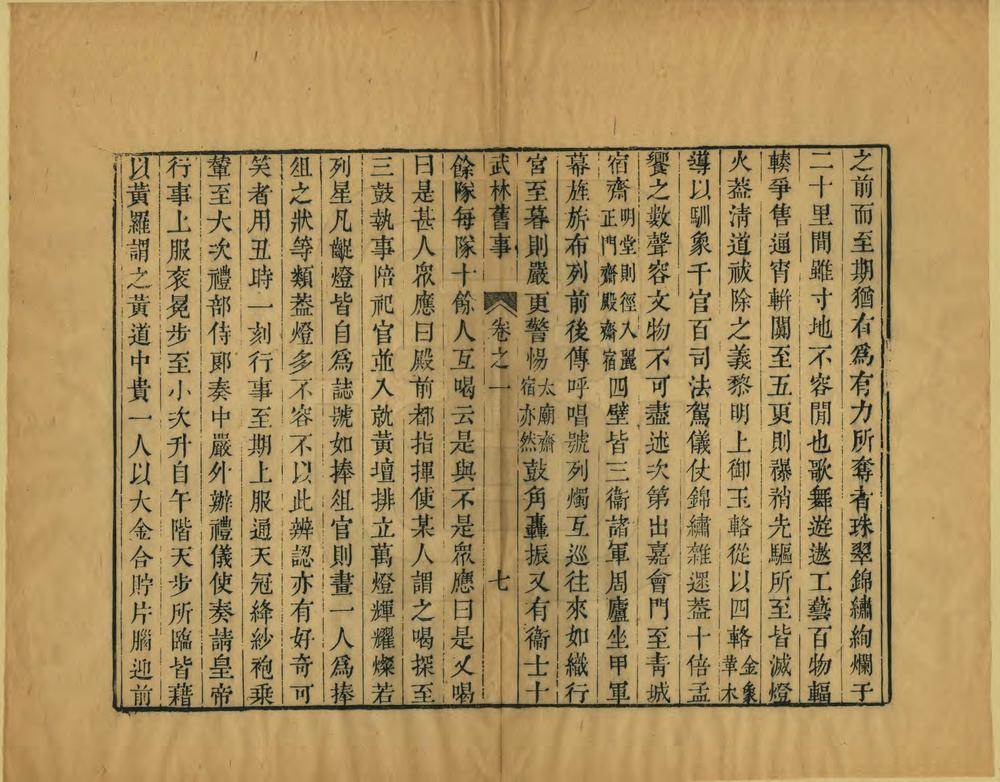 之前而至期猶有爲有力所奪者珠翠錦繡絢爛于
二十里間雖寸地不容閒也歌舞遊遨工藝百物輻
輳爭售通宵騈闐至五更則䙌矟先驅所至皆滅燈
火葢淸道祓除之義黎明上御玉輅從以四輅金象革木
導以馴象千官百司法駕儀仗錦繡雜遝葢十倍孟
饗之數聲容文物不可盡述次第出嘉會門至靑城
宿齋明堂則徑入麗正門齋殿齋宿四壁皆三衞諸軍周廬坐甲軍
幕旌旂布列前後傳呼唱號列燭互巡往來如織行
宮至暮則嚴更警惕太廟齋宿亦然鼓角轟振又有衞士十
武林舊事 卷之一 七
餘隊每隊十餘人互喝云是與不是眾應曰是又喝
曰是甚人眾應曰殿前都指揮使某人謂之喝探至
三鼓執事陪祀官並入就黃壇排立萬燈輝耀燦若
列星凡龊燈皆自爲誌號如捧俎官則畫一人爲捧
俎之狀等類葢燈多不容不以此辨認亦有好奇可
笑者用丑時一刻行事至期上服通天冠絳紗袍乗
輦至大次禮部侍郞奏中嚴外辦禮儀使奏請皇帝
行事上服衮冕步至小次升自午階天步所臨皆藉
以黃羅謂之黃道中貴一人以大金合貯片腦迎前